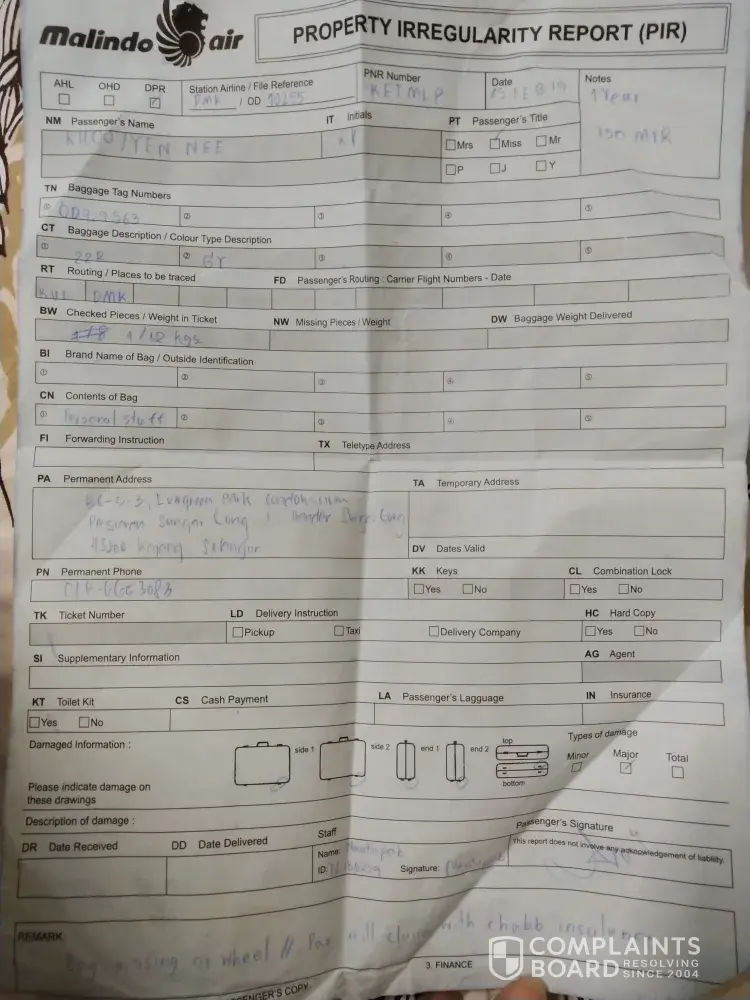 malindo air
PROPERTY IRREGULARITY REPORT (PIR)
AHL OHD DPR
Station Airline / File Reference
DMK / OD 10255
PNR Number
KETMLP
Date
Notes
1 Year
150 MYR
NM Passenger's Name
YEN NEE
IT Initials
PT Passenger's Title
Mrs Miss Mr
P J Y
TN Baggage Tag Numbers
① ② ③ ④ ⑤
CT Baggage Description / Colour Type Description
① 22R ② 5Y ③ ④ ⑤
RT Routing / Places to be traced
KUL DMK
FD Passenger's Routing : Carrier Flight Numbers - Date
BW Checked Pieces / Weight in Ticket
1/12 kgs
NW Missing Pieces / Weight
DW Baggage Weight Delivered
BI Brand Name of Bag / Outside Identification
① ② ③ ④ ⑤
CN Contents of Bag
① Personal stuff ② ③ ④ ⑤
FI Forwarding Instruction
TX Teletype Address
PA Permanent Address
Park
Sungai Long 1
Kajang Selangor
TA Temporary Address
DV Dates Valid
PN Permanent Phone
KK Keys
Yes No
CL Combination Lock
Yes No
TK Ticket Number
LD Delivery Instruction
Pickup Taxi Delivery Company
HC Hard Copy
Yes No
SI Supplementary Information
AG Agent
KT Toilet Kit
Yes No
CS Cash Payment
LA Passenger's Lagguage
IN Insurance
Damaged Information :
side 1 side 2 end 1 end 2
top
bottom
Types of damage
Minor Major Total
Please indicate damage on
these drawings
Description of damage :
DR Date Received
DD Date Delivered
Staff
Name:
ID:
Signature:
Passenger's Signature
This report does not involve any acknowledgement of liability.
REMARK
missing wheel // Pax will claim with chubb insurance
3. FINANCE
PASSENGER'S COPY
COMPLAINTS
BOARD
RESOLVING
SINCE 2004